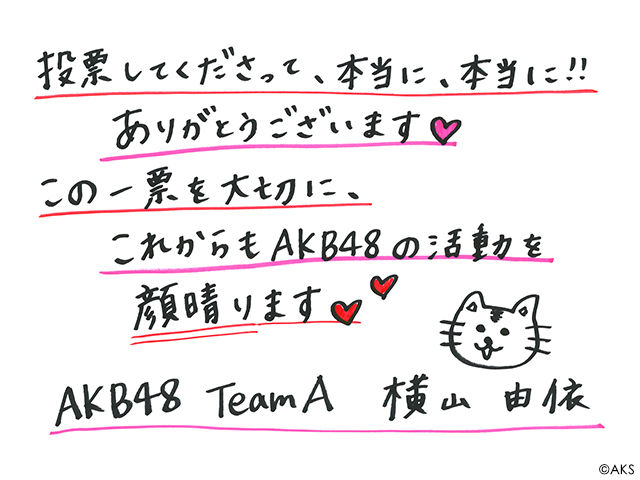 投票してくださって、本当に、本当に!!
ありがとうございます♥
この一票を大切に、
これからもAKB48の活動を
顔晴ります♥♥
AKB48 TeamA 横山 由依
©AKS